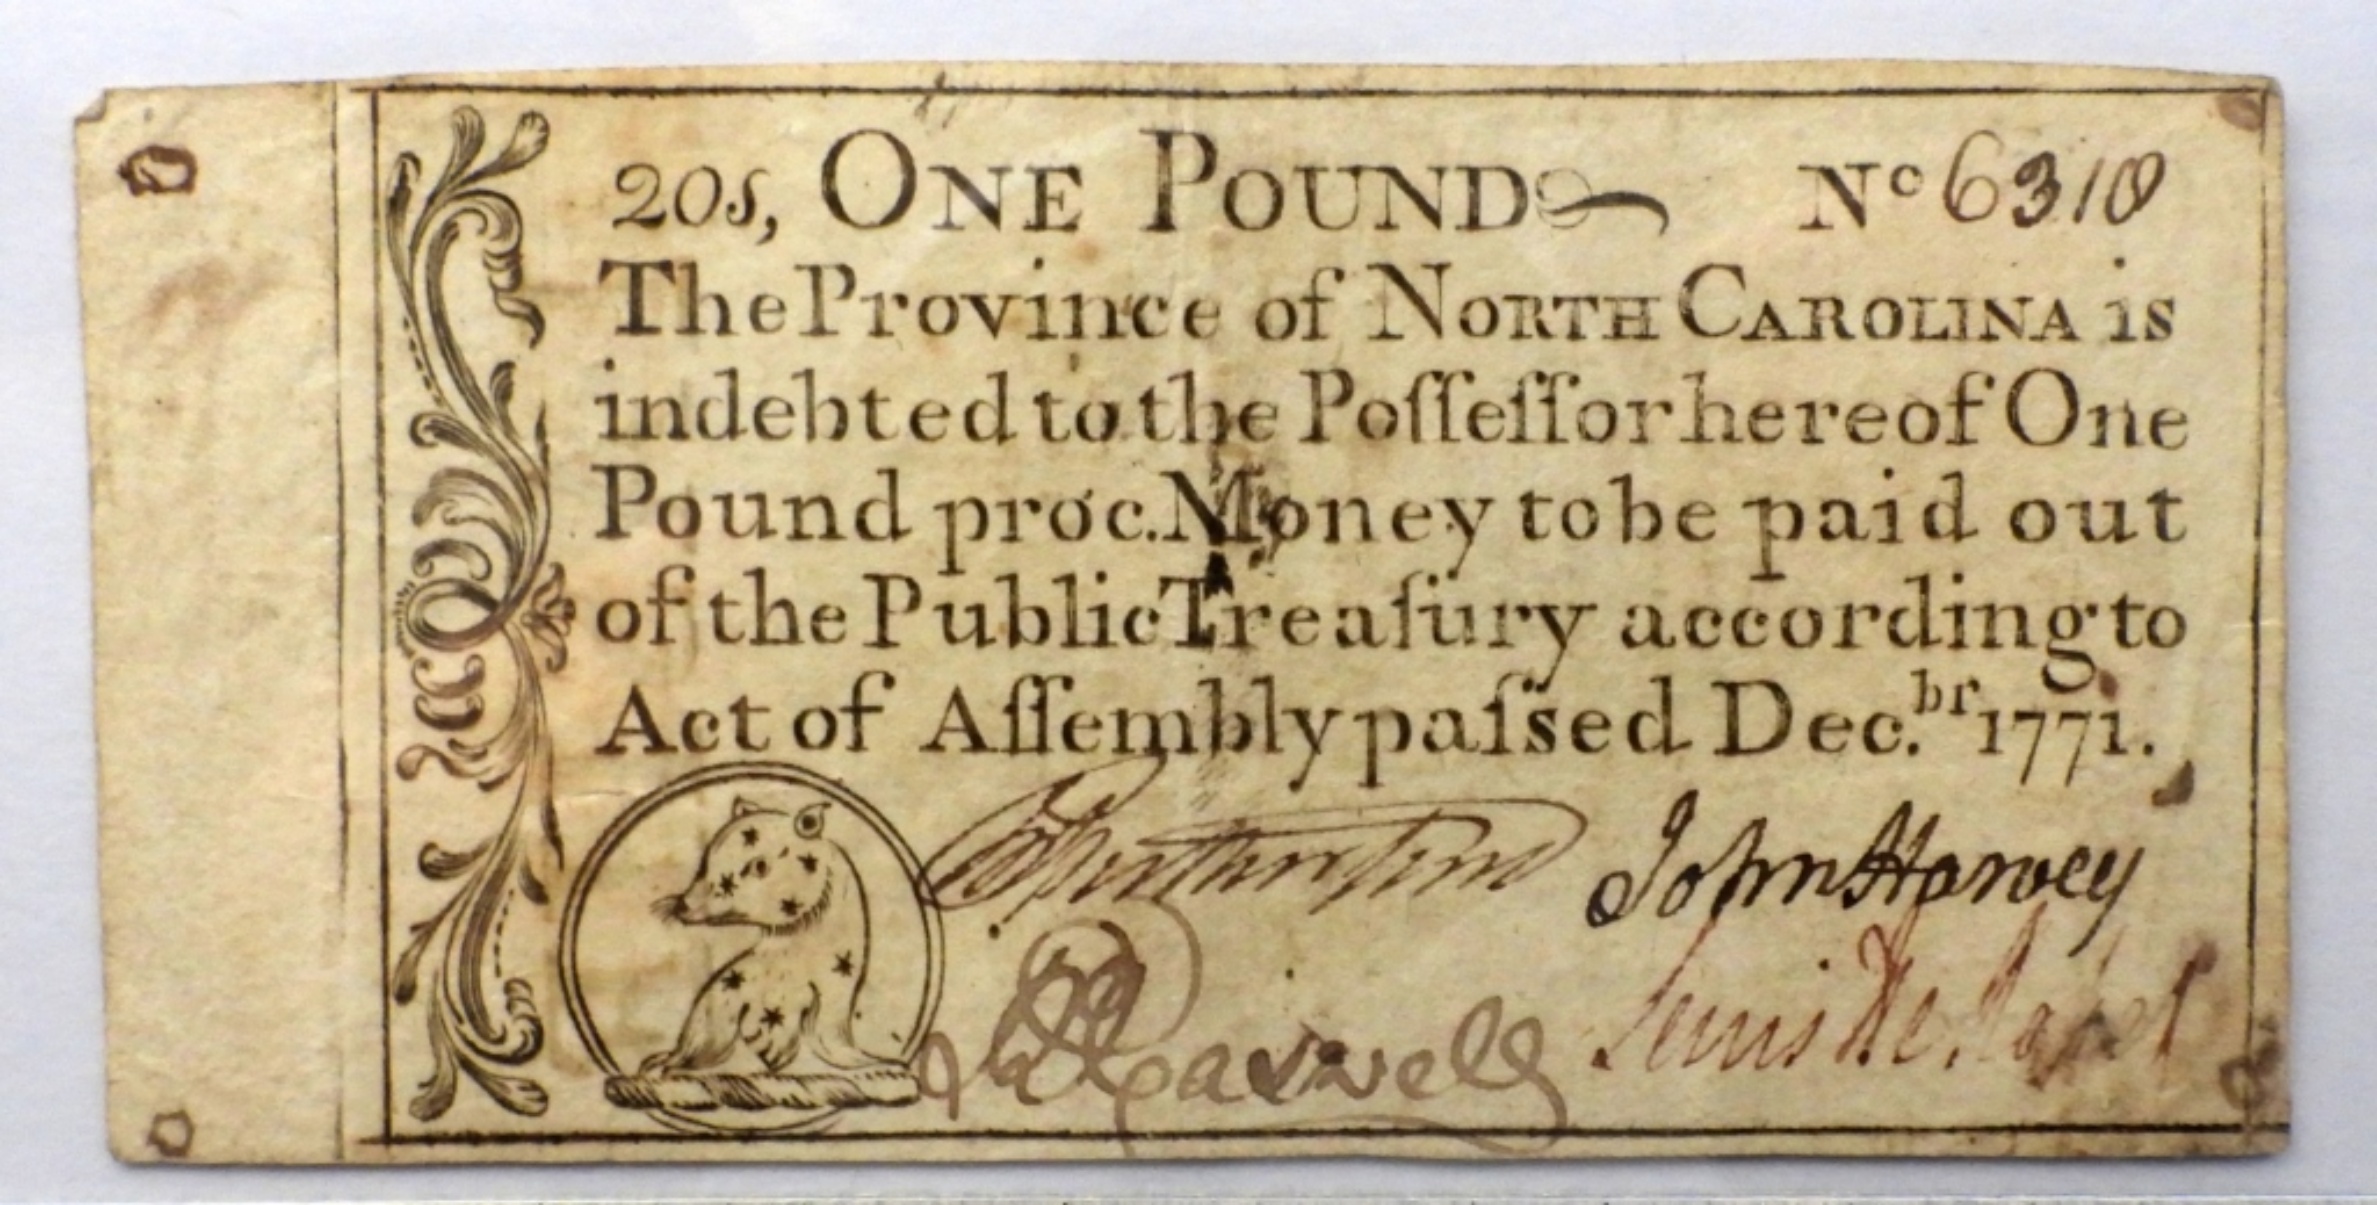 20s, ONE POUND No 6310
The Province of NORTH CAROLINA is
indebted to the Poſſeſſor hereof One
Pound proc. Money to be paid out
of the Public Treaſury according to
Act of Aſſembly paſsed Dec.br 1771.
John Harvey
RCaswell Lewis De. Roſset